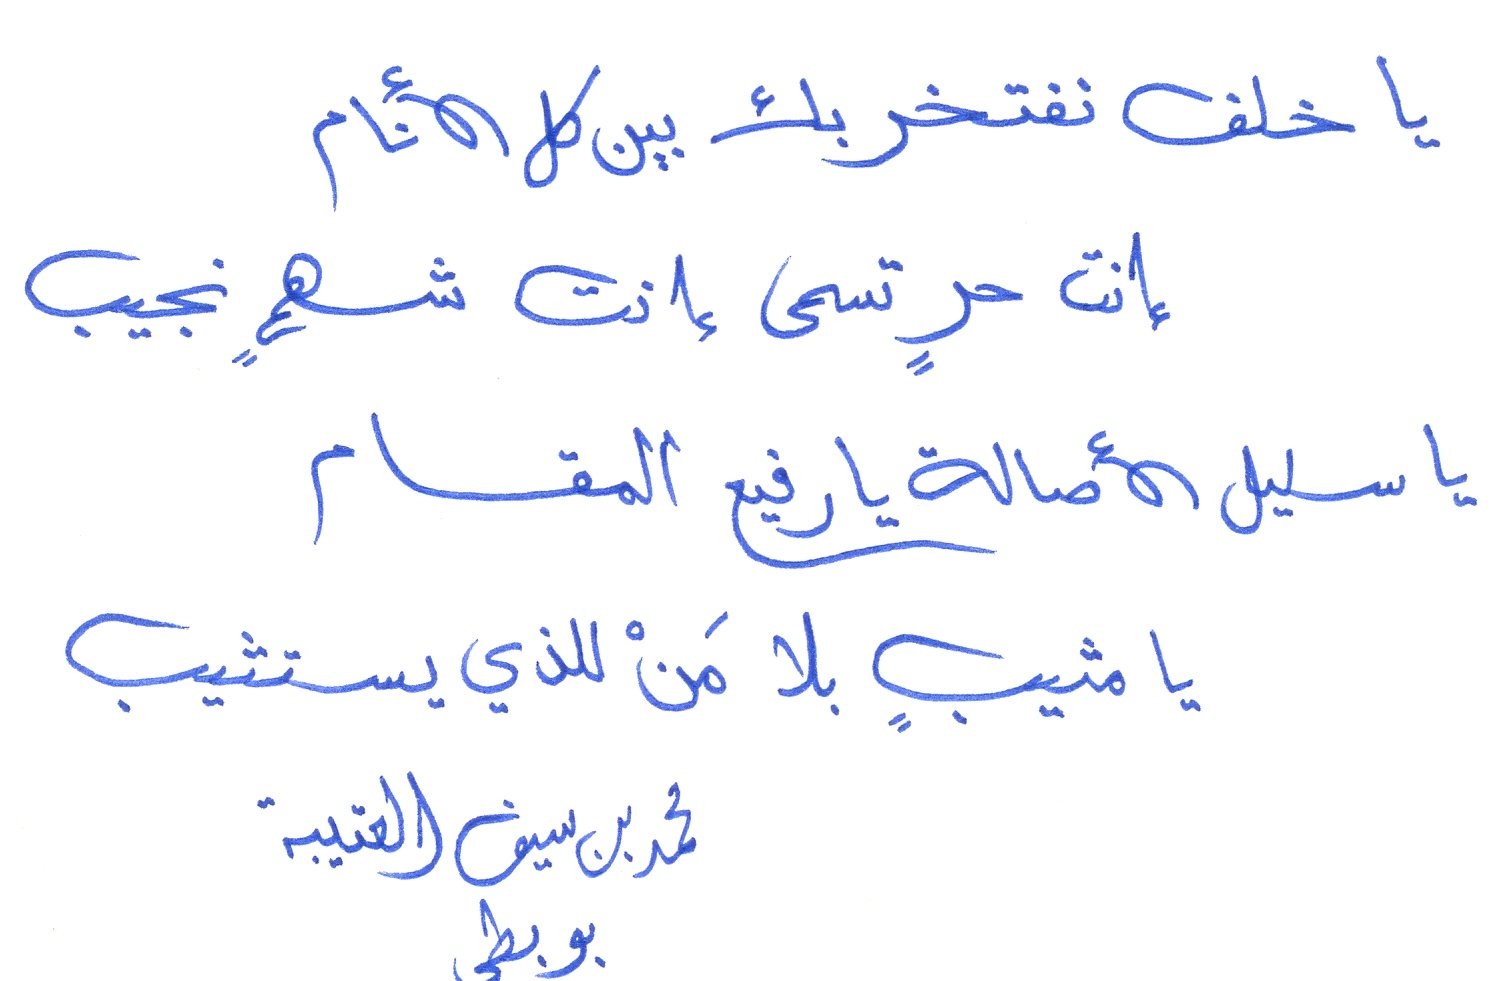 يا خلف نفتخر بك بين كل الأنام
إنت حرٍ تسمى إنت شهمٍ نجيب
يا سليل الأصالة يا رفيع المقام
يا مثيبٍ بلا مَنْ للذي يستثيب
محمد بن سيف العتيبة
بو بطي